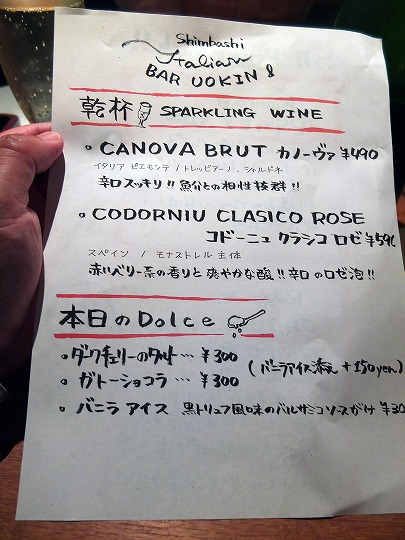 Shimbashi
Italian
BAR UOKIN 8
乾杯 SPARKLING WINE
• CANOVA BRUT カノーヴァ ¥490
イタリア ピエモンテ / トレッビアーノ、シャルドネ
辛口スッキリ!! 魚介との相性抜群!!
• CODORNIU CLASICO ROSE
コドーニュ クラシコ ロゼ ¥590
スペイン / モナストレル 主体
赤いベリー系の香りと爽やかな酸!! 辛口のロゼ泡!!
本日のDolce
• ダークチェリーのタルト… ¥300
(バニラアイス添え +150yen)
• ガトーショコラ … ¥300
• バニラ アイス 黒トリュフ風味のバルサミコソースがけ ¥30